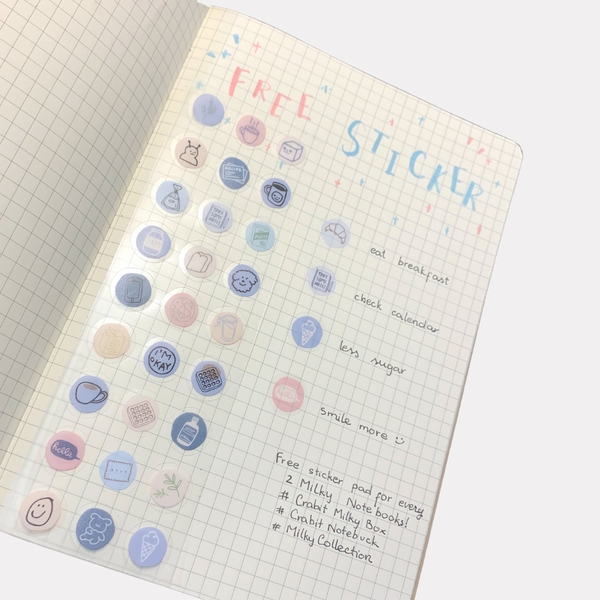 FREE STICKER
eat breakfast
check calendar
less sugar
smile more
I'M OKAY
hello
Free sticker pad for every
2 Milky Notebooks!
# Crabit Milky Box
# Crabit Notebuck
# MilkyCollection